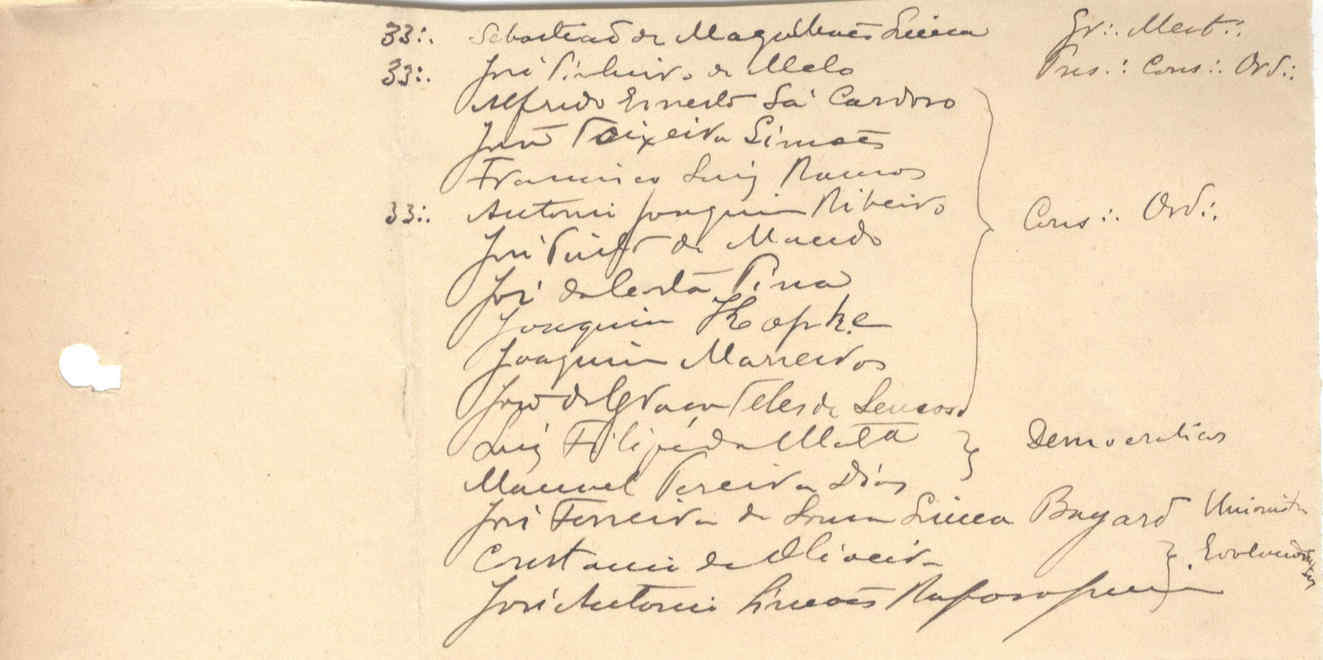 33∴ Sebastião de Magalhães Lima Gr∴ Mest∴
33∴ José Pinheiro de Melo Pres∴ Cons∴ Ord∴
Alfredo Ernesto Sá Cardoso
José Teixeira Simões
Francisco Luiz Ramos
33∴ Antonio Joaquim Ribeiro Cons∴ Ord∴
José Pinto de Macedo
José da Costa Pina
Joaquim Kopke
Joaquim Marreiros
José da Graça Teles de Lemos
Luiz Filipe da Mata Democraticos
Manuel Pereira Dias
José Ferreira de Sousa Lima Bayard Unionista
Constancio de Oliveira Evolucionistas
José Antonio Simões Raposo Junior